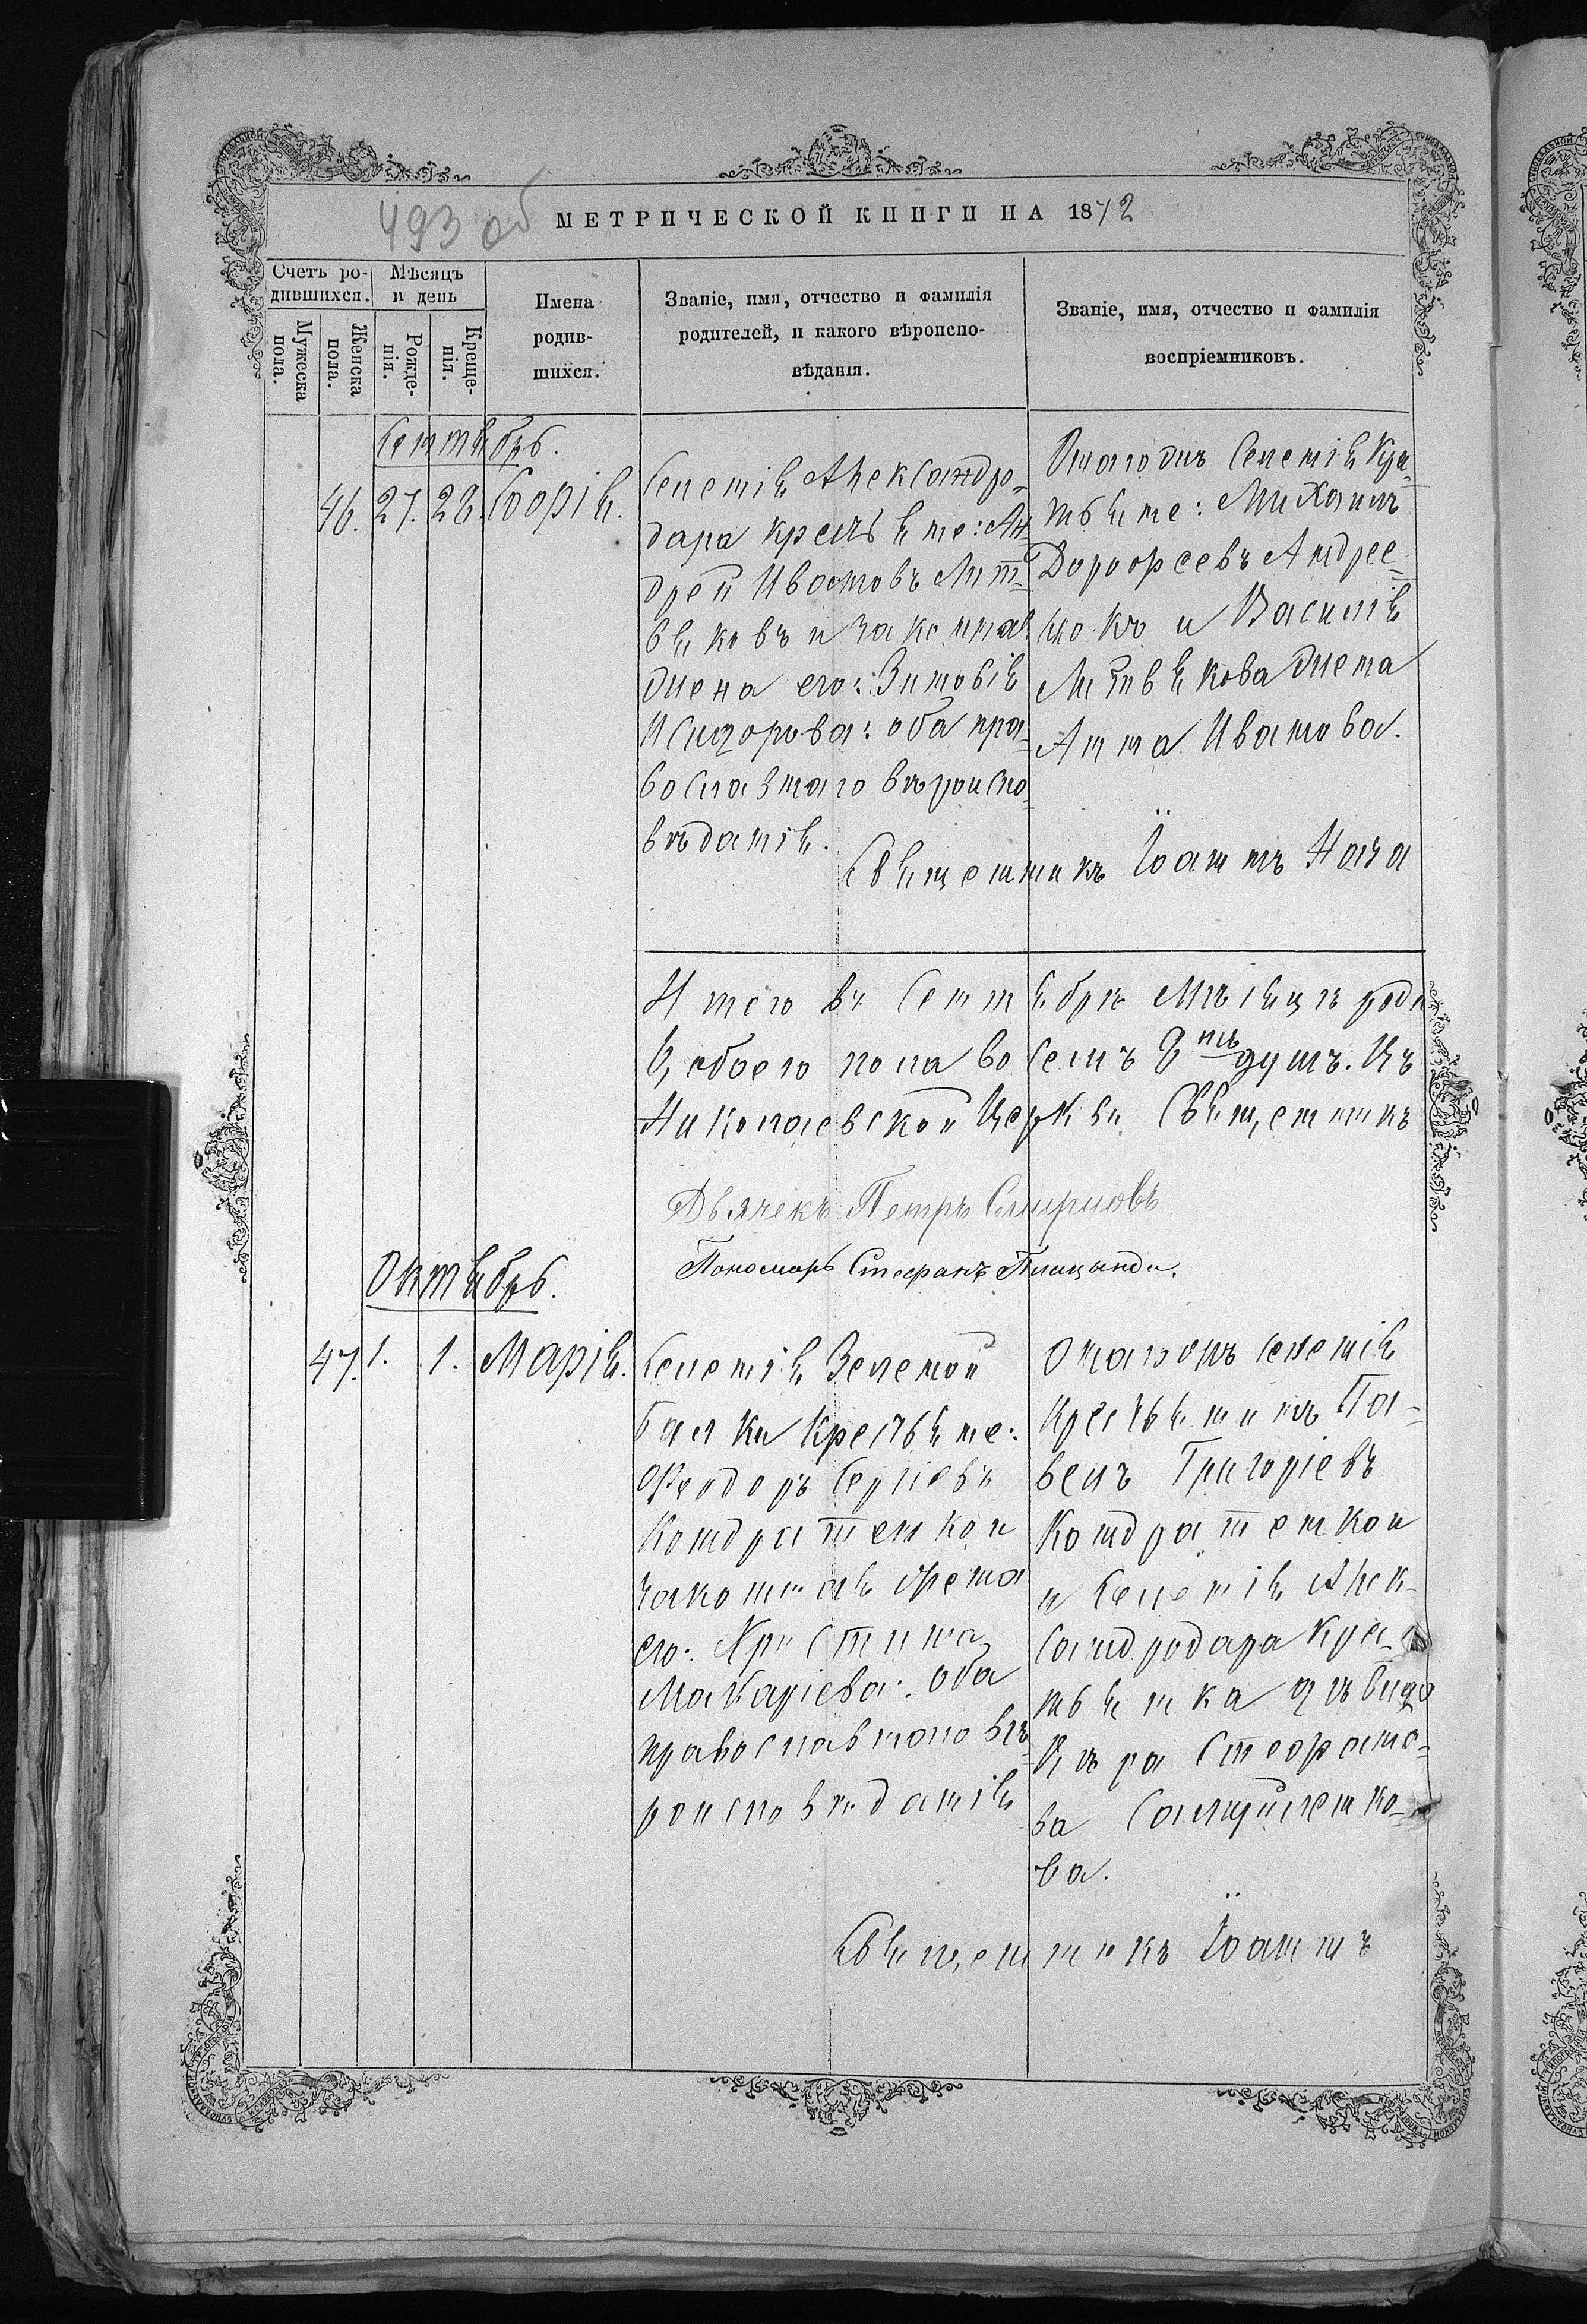 493 об
МЕТРИЧЕСКОЙ КНИГИ НА 1872
Счетъ ро-
дившихся.
Мѣсяцъ
и день
Мужеска
пола.
Женска
пола.
Рожде-
нія.
Креще-
нія.
Имена
родив-
шихся.
Званіе, имя, отчество и фамилія
родителей, и какого вѣроиспо-
вѣданія.
Званіе, имя, отчество и фамилія
воспріемниковъ.
Сентябрь.
46. 27. 28. Софія.
Селенія Александро-
дара крестьяне: Ан-
дрей Ивановъ Лит-
вяковъ и законная
жена его: Зиновія
Исидорова: оба пра-
вославнаго вѣроиспо-
вѣданія.
Онагожъ Селенія Крес-
тьяне: Михаилъ
Дорофеевъ Андрее-
и Василія
Литвякова жена
Анна Иванова.
Священникъ Іоаннъ
Итого въ Сентябрѣ Мѣсяцѣ
обоего пола восемъ 8мь душъ. Въ
Николаевской Церкви Священникъ
Дьячекъ Петръ Смирновъ
Пономарь Стефанъ
Октябрь.
47. 1. 1. Марія.
Селенія Зеленой
балки Крестьяне:
Феодоръ Сергіевъ
Кондратенко и
законная жена
его: Христина
Макаріева: оба
православнаго вѣ-
роисповѣданія
Онагожъ селенія
крестьянинъ Па-
велъ Григоріевъ
Кондратенко и
и Селенія Алек-
сандродара Крес-
тьянка дѣвица
Вѣра Стефано-
ва
ва.
Священникъ Іоаннъ